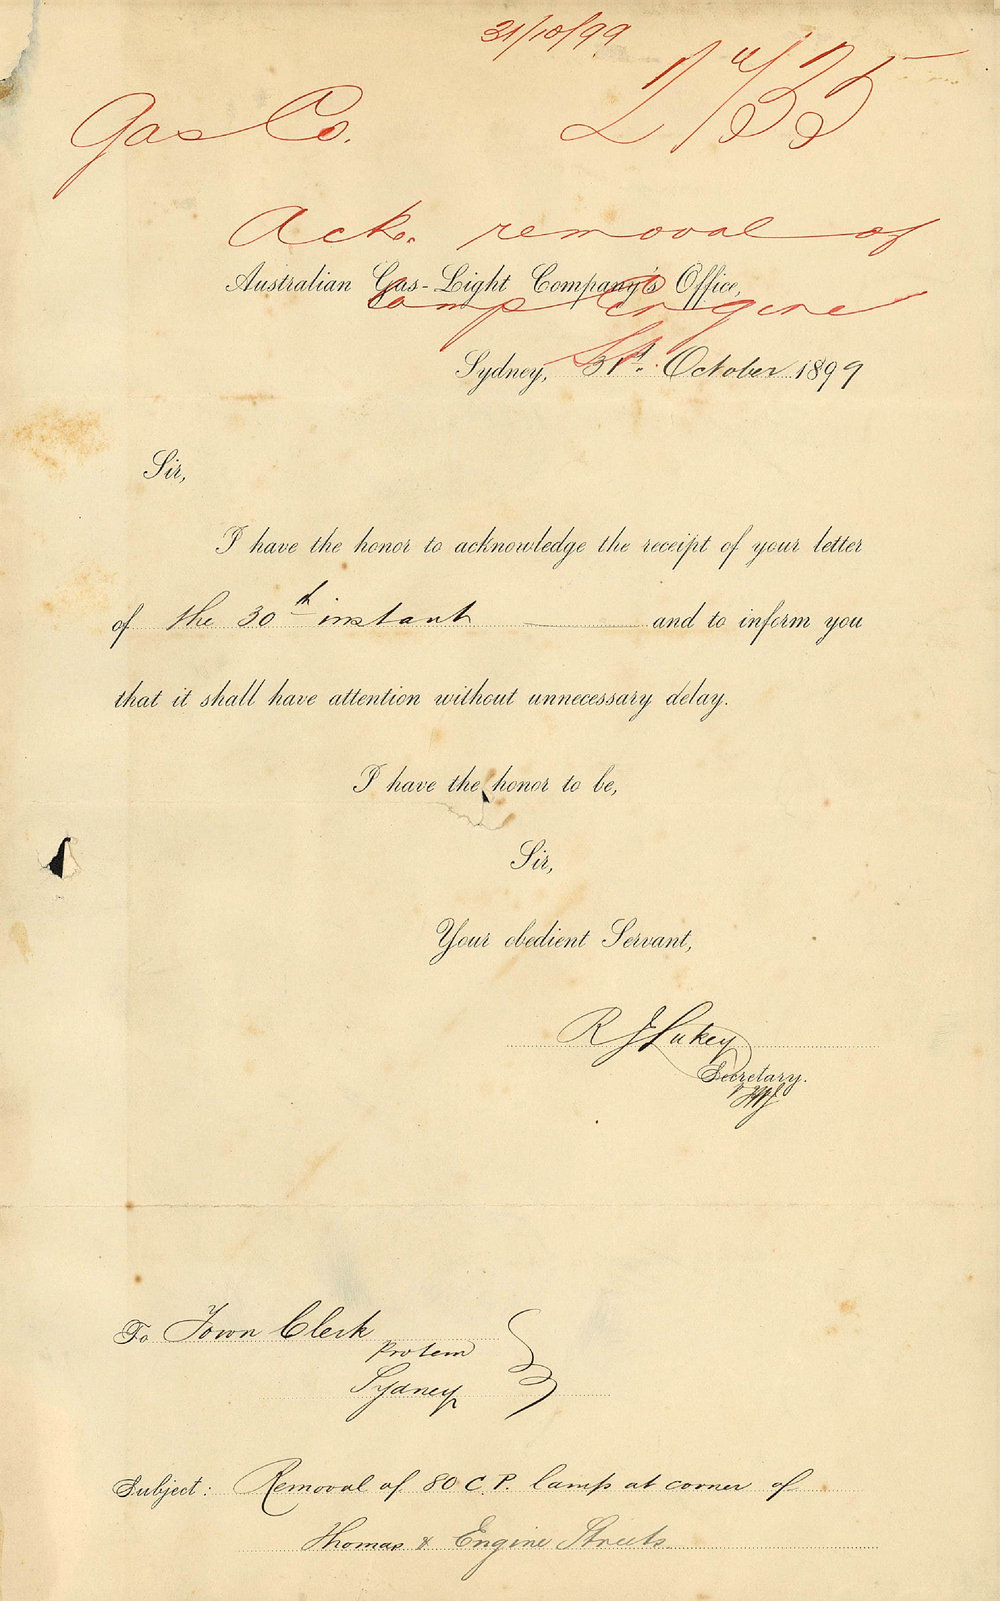 31/10/99
Gas Co.
Ack. removal of
Australian Gas-Light Company's Office,
Lamp Engine
St.
Sydney, 31st. October 1899
Sir,
I have the honor to acknowledge the receipt of your letter
of the 30th instant and to inform you
that it shall have attention without unnecessary delay.
I have the honor to be,
Sir,
Your obedient Servant,
R J Lukey
Secretary.
To Town Clerk
Protem
Sydney
Subject: Removal of 80 C.P. lamp at corner of
Thomas & Engine Streets